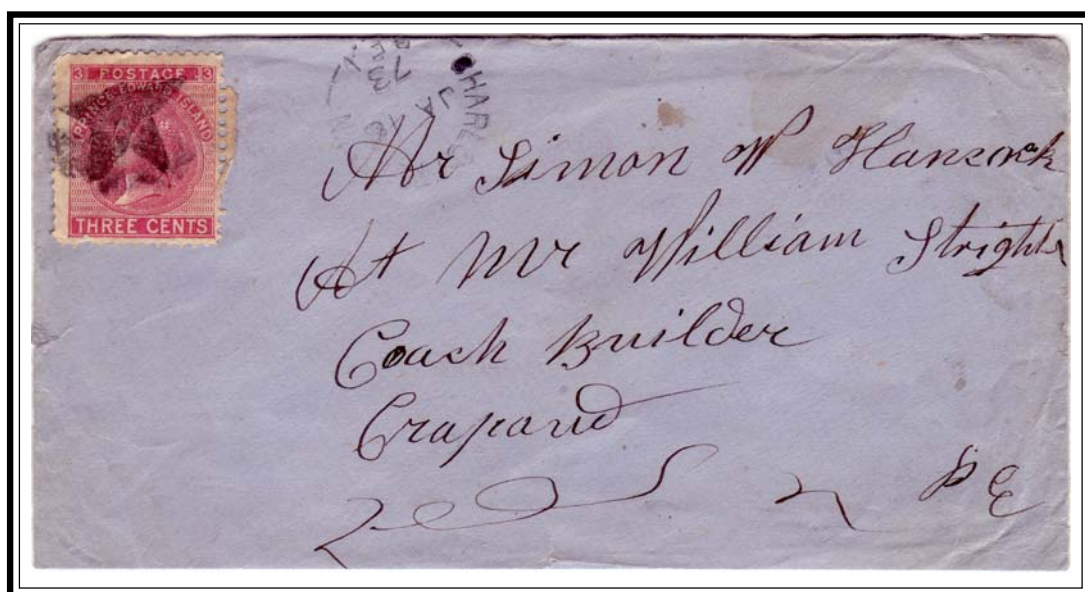 3 POSTAGE 3
PRINCE EDWARD ISLAND
THREE CENTS
Mr Simon W Hancock
At Mr William Strights
Coach Builder
Crapaud
P E